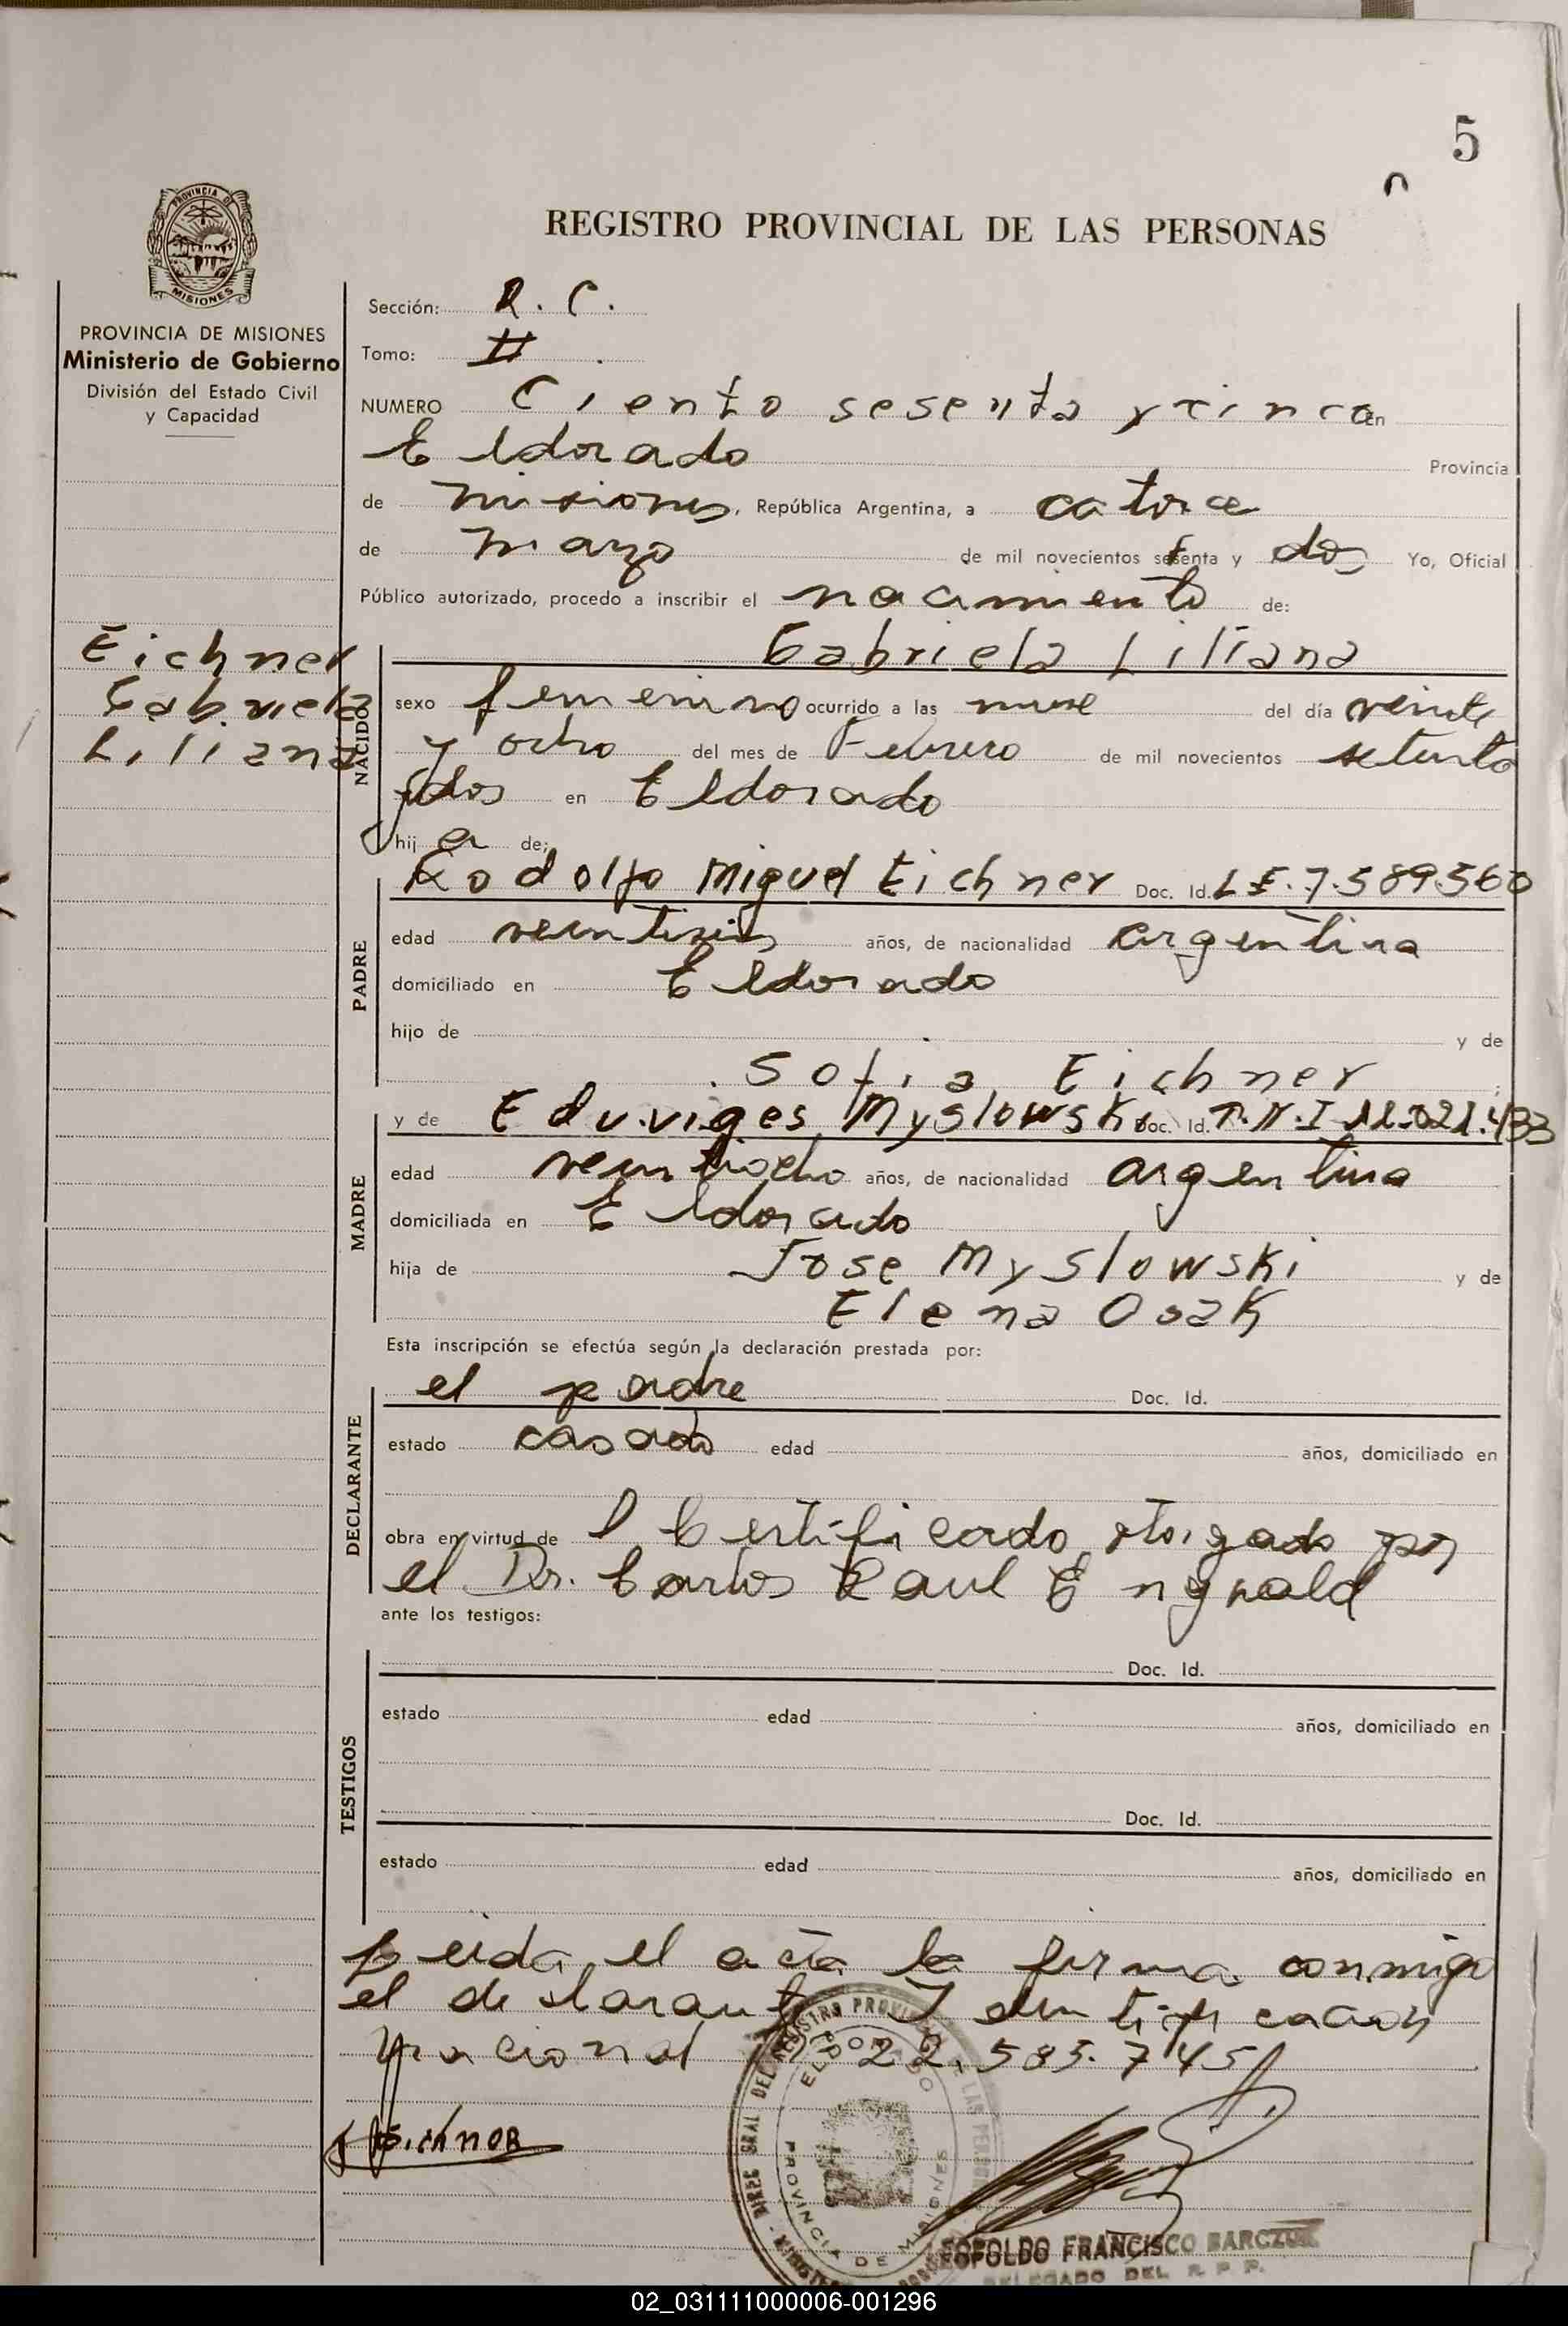 5
REGISTRO PROVINCIAL DE LAS PERSONAS
PROVINCIA DE
MISIONES
PROVINCIA DE MISIONES
Ministerio de Gobierno
División del Estado Civil
y Capacidad
Sección: R. C.
Tomo: II
NUMERO Ciento sesenta y cinco en
Eldorado Provincia
de Misiones, República Argentina, a catorce
de marzo de mil novecientos setenta y dos Yo, Oficial
Público autorizado, procedo a inscribir el nacimiento de:
Eichner
Gabriela
Liliana
NACIDO
Gabriela Liliana
sexo femenino ocurrido a las nueve del día veinte
y ocho del mes de Febrero de mil novecientos setenta
y dos en Eldorado
hij a de;
PADRE
Rodolfo Miguel Eichner Doc. Id. L E. 7.589.560
edad años, de nacionalidad argentina
domiciliado en Eldorado
hijo de y de
Sofia Eichner
MADRE
y de Eduviges Myslowski Doc. Id. D.N.I 11.021.433
edad veintiocho años, de nacionalidad argentina
domiciliada en Eldorado
hija de Jose Myslowski y de
Elena Osak
Esta inscripción se efectúa según la declaración prestada por:
DECLARANTE
el padre Doc. Id.
estado casado edad años, domiciliado en
obra en virtud de l Certificado otorgado por
el Dr. Carlos Raul
ante los testigos:
TESTIGOS
Doc. Id.
estado edad años, domiciliado en
Doc. Id.
estado edad años, domiciliado en
Leida el acta la firma conmigo
el declarante Identificación
Nacional Nº 22.585.745
Eichner
ELDORADO
PROVINCIA DE MISIONES
LEOPOLDO FRANCISCO BARCZUK
DELEGADO DEL R. P. P.
02_031111000006-001296